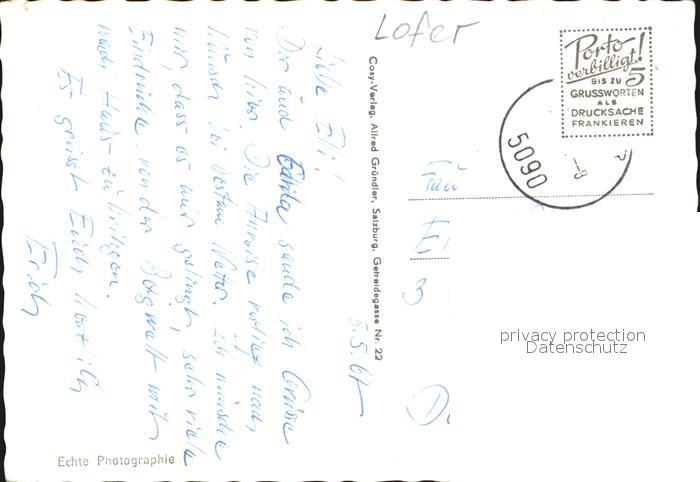 Lofer
Porto
verbilligt!
BIS ZU 5
GRUSSWORTEN
ALS
DRUCKSACHE
FRANKIEREN
5090
5.5.67
Liebe Elli!
Dir und sende ich Grüsse
von hier. Die Anreise verlief nach
bei bestem Wetter. Ich wünsche
mir, dass es mir gelingt, sehr viele
Eindrücke von der Bergwelt mit
nach Haus zu bringen.
Es grüsst Euch herzlich
Erich
Cosy-Verlag, Alfred Gründler, Salzburg, Getreidegasse Nr. 22
Frau
privacy protection
Datenschutz
Echte Photographie